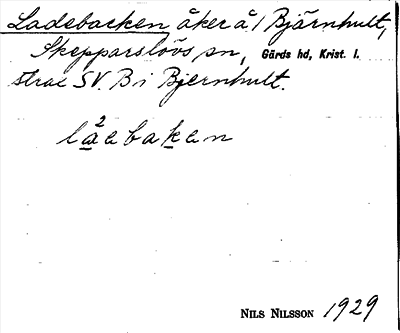 Ladebacken åker å 1 Bjärnhult,
Skepparslövs sn, Gärds hd, Krist. l.
strax SV. B i Bjernhult.
2
laebaken
NILS NILSSON 1929